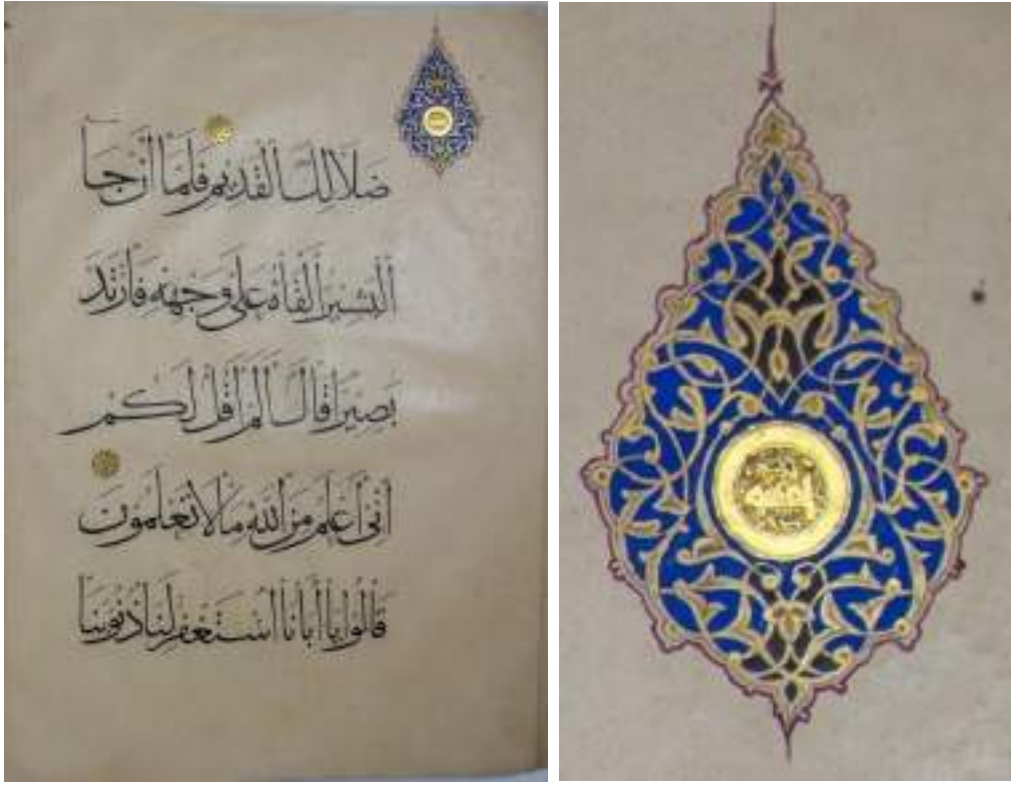 ضَلَالِكَ الْقَدِيمِ فَلَمَّا أَنْ جَاءَ
الْبَشِيرُ أَلْقَاهُ عَلَى وَجْهِهِ فَارْتَدَّ
بَصِيرًا قَالَ أَلَمْ أَقُلْ لَكُمْ
إِنِّي أَعْلَمُ مِنَ اللَّهِ مَا لَا تَعْلَمُونَ
قَالُوا يَا أَبَانَا اسْتَغْفِرْ لَنَا ذُنُوبَنَا